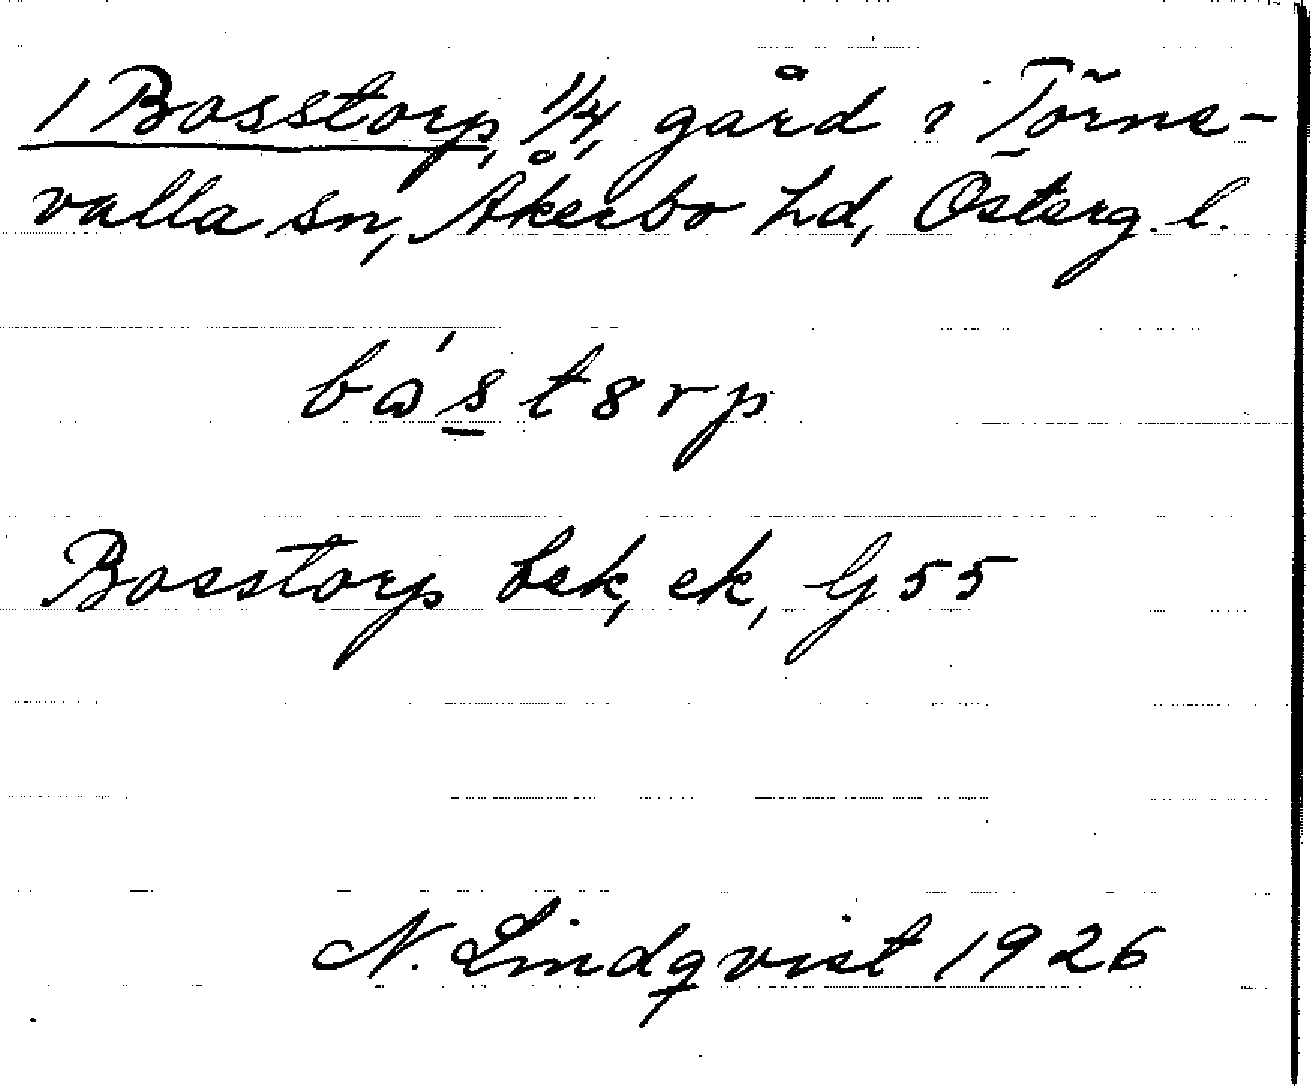 1 Bosstorp, 1/4, gård i Törne-
valla sn, Åkerbo hd, Österg. l.
bås̲tȣrp
Bosstorp bek, ek, G 55
N. Lindqvist 1926